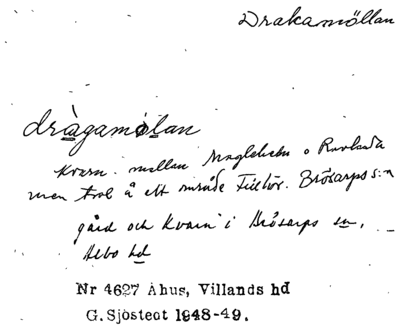 Drakamöllan
dràgamölan
Kvarn. mellan Maglehem o Ravlunda
men trol å ett område tillhör. Brösarps s:n
gård och kvarn i Brösarps sn,
Albo hd
Nr 4627 Åhus, Villands hd
G. Sjöstedt 1948-49.